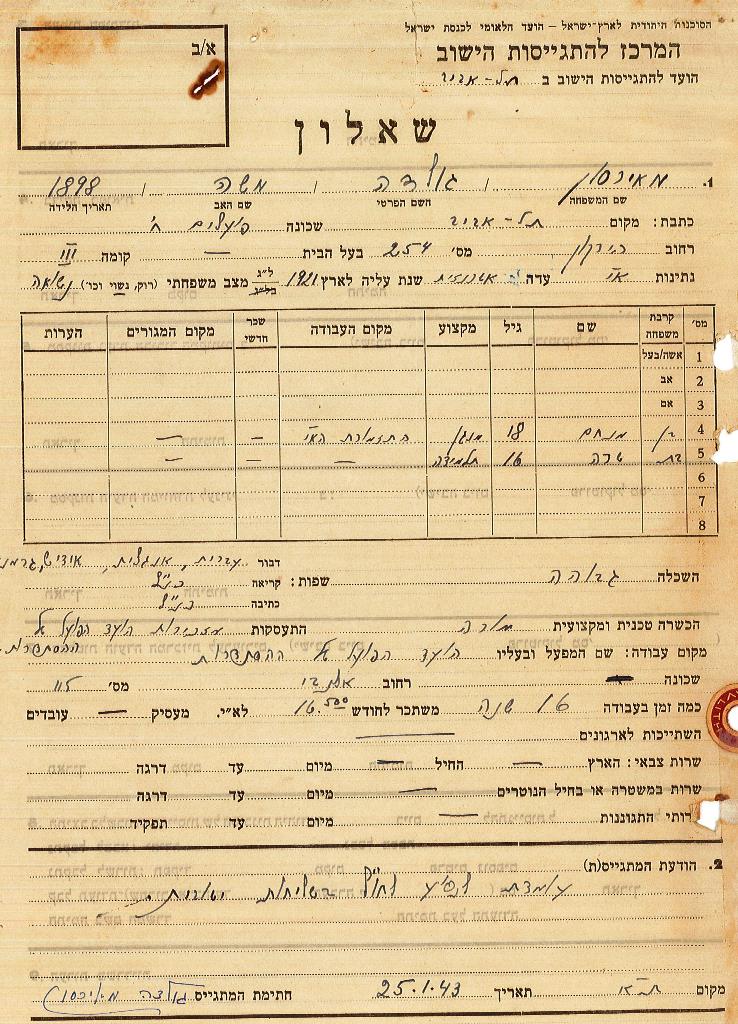 הסוכנות היהודית לארץ־ישראל – הועד הלאומי לכנסת ישראל
המרכז להתגייסות הישוב
הועד להתגייסות הישוב ב תל-אביב
א/ב
שאלון
1. מאירסון גולדה משה 1898
שם המשפחה השם הפרטי שם האב תאריך הלידה
כתבת: מקום תל-אביב שכונה פועלים ח'
רחוב הירקון מס' 254 בעל הבית — קומה III
נתינות א"י עדה אשכנזית שנת עליה לארץ 1921 מצב משפחתי (רוק, נשוי וכו') נשואה
מס' קרבת משפחה שם גיל מקצוע מקום העבודה שכר חדשי מקום המגורים הערות
1 אשה/בעל
2 אב
3 אם
4 בן מנחם 18 מנגן התזמורת הא"י — —
5 בת שרה 16 תלמידה — — —
6
7
8
השכלה גבוהה שפות: דבור עברית, אנגלית, אידיש, גרמנ
קריאה כנ"ל
כתיבה כנ"ל
הכשרה טכנית ומקצועית מורה התעסקות מזכירות הועד הפועל של ההסתדרות
מקום עבודה: שם המפעל ובעליו הועד הפועל של ההסתדרות
שכונה — רחוב אלנבי מס' 115
כמה זמן בעבודה 16 שנה משתכר לחודש 16.500 לא"י. מעסיק — עובדים
השתייכות לארגונים —
שרות צבאי: הארץ — החיל — מיום עד דרגה
שרות במשטרה או בחיל הנוטרים — מיום עד דרגה
רותי התגוננות — מיום עד תפקיד
2. הודעת המתגייס(ת)
עומדת לנסוע לחו"ל בשליחות
מקום ת"א תאריך 25.1.43 חתימת המתגייס גולדה מאירסון